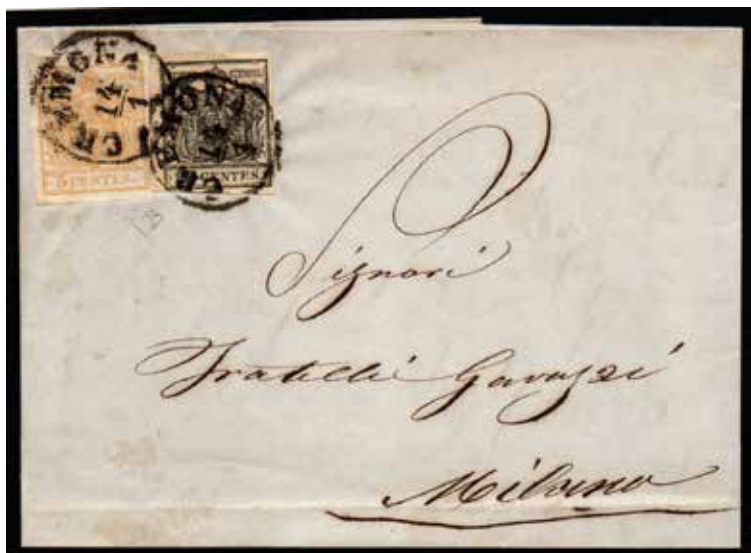 CREMONA
14
1
5 CENTES.
CENTES
Signori
Fratelli Gavazzi
Milano